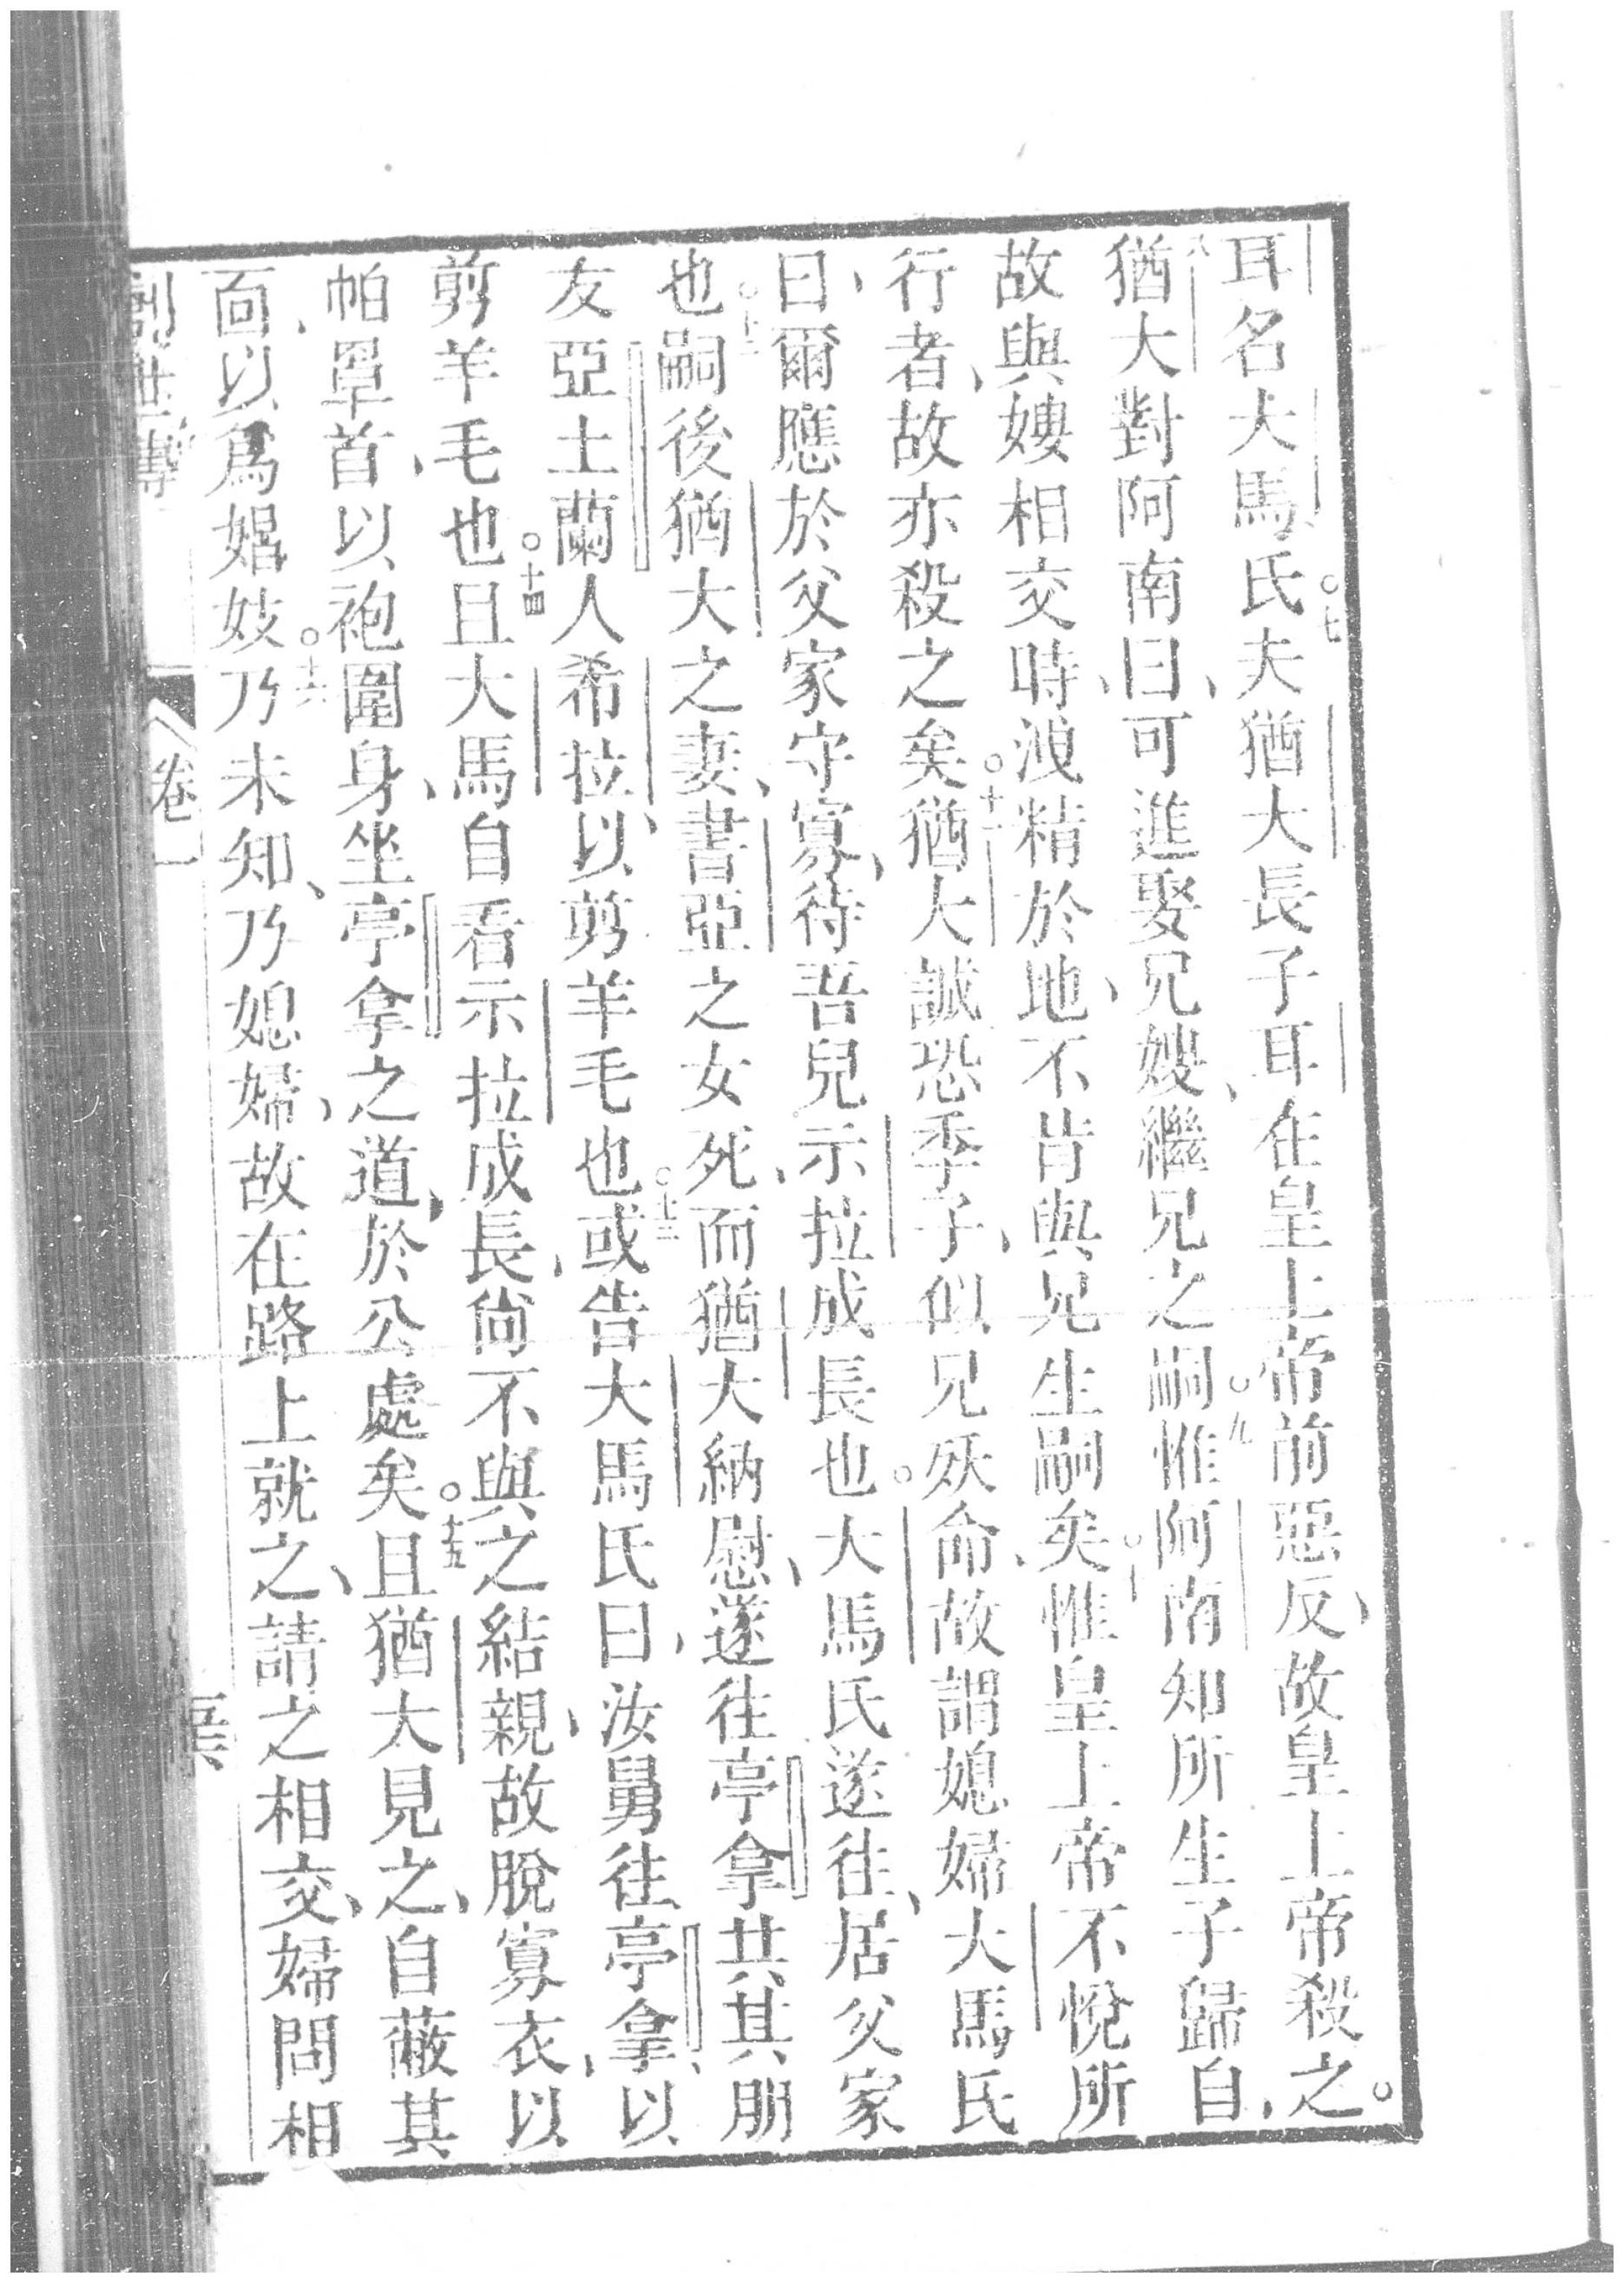 耳名大馬氏○七夫猶大長子耳在皇上帝前惡反、故皇上帝殺之。
八猶大對阿南曰、可進娶兄嫂、繼兄之嗣○九惟阿南知所生子歸自、
故與㛹相交時、洩精於地、不肯與兄生嗣矣○十惟皇上帝不悅所
行者、故亦殺之矣○十一猶大誠恐季子、似兄殀命、故謂媳婦大馬氏
曰、爾應於父家守寡、待吾兒示拉成長也。大馬氏遂往、居父家
也○十二嗣後猶大之妻、書亞之女死、而猶大納慰、遂往亭拿共其朋
友亞土蘭人希拉、以剪羊毛也○十三或告大馬氏曰、汝舅往亭拿、以
剪羊毛也○十四且大馬自看示拉成長、尙不與之結親、故脫寡衣、以
帕罩首、以袍圍身、坐亭拿之道、於公處矣○十五且猶大見之、自蔽其
面、以爲娼妓○十六乃未知、乃媳婦、故在路上就之、請之相交、婦問相
創世傳 卷一